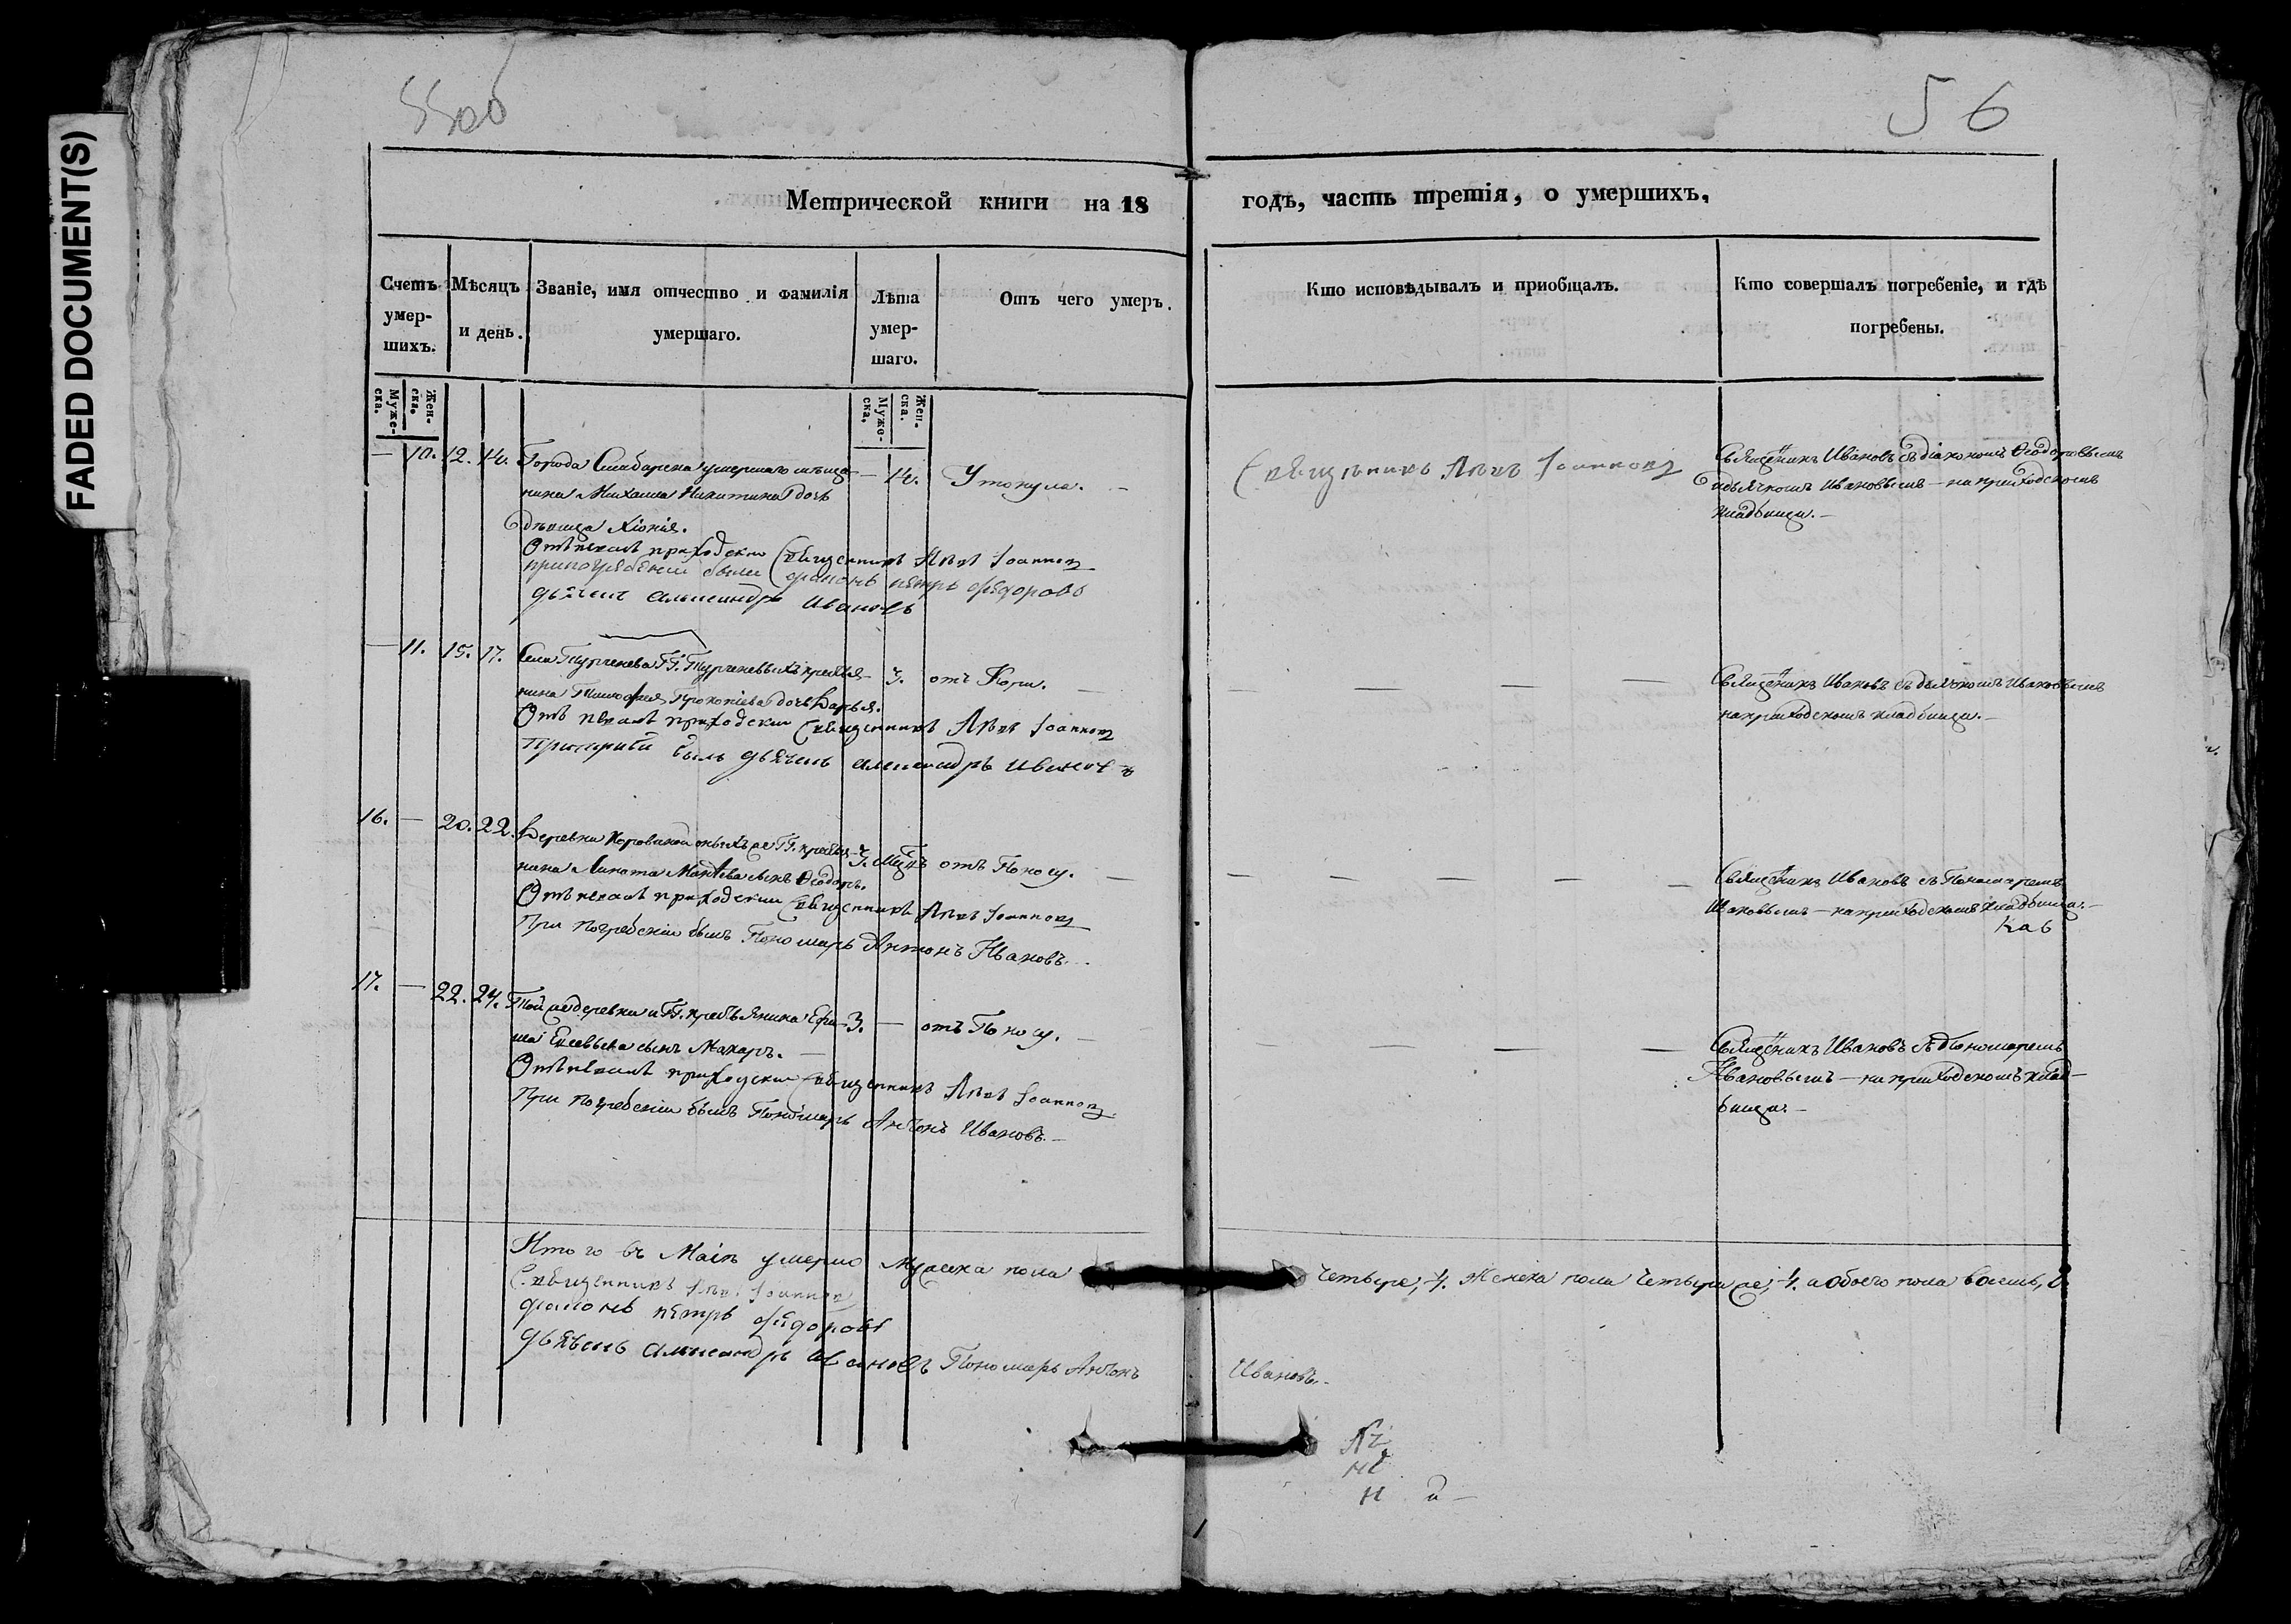 FADED DOCUMENT(S)
55об
56
Метрической книги на 18
годъ, часть третія, о умершихъ.
Счетъ умер-шихъ.
Мѣсяцъ и день.
Званіе, имя отчество и фамилія умершаго.
Лѣта умер-шаго.
Отъ чего умеръ.
Кто исповѣдывалъ и пріобщалъ.
Кто совершалъ погребеніе, и гдѣ погребены.
Муже-ска.
Жен-ска.
Муже-ска.
Жен-ска.
— 10. 12. 14. Города Симбирска умершаго мѣща- — 14. Утонула. —
нина Михаила Никитина дочь
дѣвица Хіонія.
Отпѣвалъ приходскій Священникъ Левъ Іоанновъ
при погребеніи были Діаконъ Петръ Федоровъ
дьячекъ Александръ Ивановъ
Священникъ Левъ Іоанновъ
Священникъ Ивановъ съ діакономъ Ѳеодоровымъ
и дьячкомъ Ивановымъ — на приходскомъ
кладбищи. —
— 11. 15. 17. Села Тургенева ГГ. Тургеневыхъ крестья- 3. отъ Кори. —
нина Тимофея Прокопіева дочь Дарья.
Отпѣвалъ приходскій Священникъ Левъ Іоанновъ
былъ дьячекъ Александръ Ивановъ
Священникъ Ивановъ съ дьячкомъ Ивановымъ
на приходскомъ кладбищи. —
16. — 20. 22. Деревни оныхъ же ГГ. крестья- 3. мцъ отъ Поносу. —
нина сынъ Ѳеодоръ.
Отпѣвалъ приходскій Священникъ Левъ Іоанновъ
При погребеніи былъ Пономарь Антонъ Ивановъ.
Священникъ Ивановъ съ Пономаремъ
Ивановымъ — на приходскомъ кладбищи. —
17. — 22. 24. Той же деревни и ГГ. крестьянина Ефи- 3. — отъ Поносу. —
ма сынъ Макаръ. —
Отпѣвалъ приходскій Священникъ Левъ Іоанновъ
При погребеніи былъ Пономарь Антонъ Ивановъ. —
Священникъ Ивановъ съ Пономаремъ
Ивановымъ — на приходскомъ клад-
бищи. —
Итого въ Маіѣ умерло Мужска пола
четыре, 4. Женска пола четыре же, 4. а обоего пола восемь, 8.
Священникъ Левъ Іоанновъ
диаконъ Петръ Федоровъ
дьячекъ Александръ Ивановъ Пономарь Антонъ
Ивановъ.